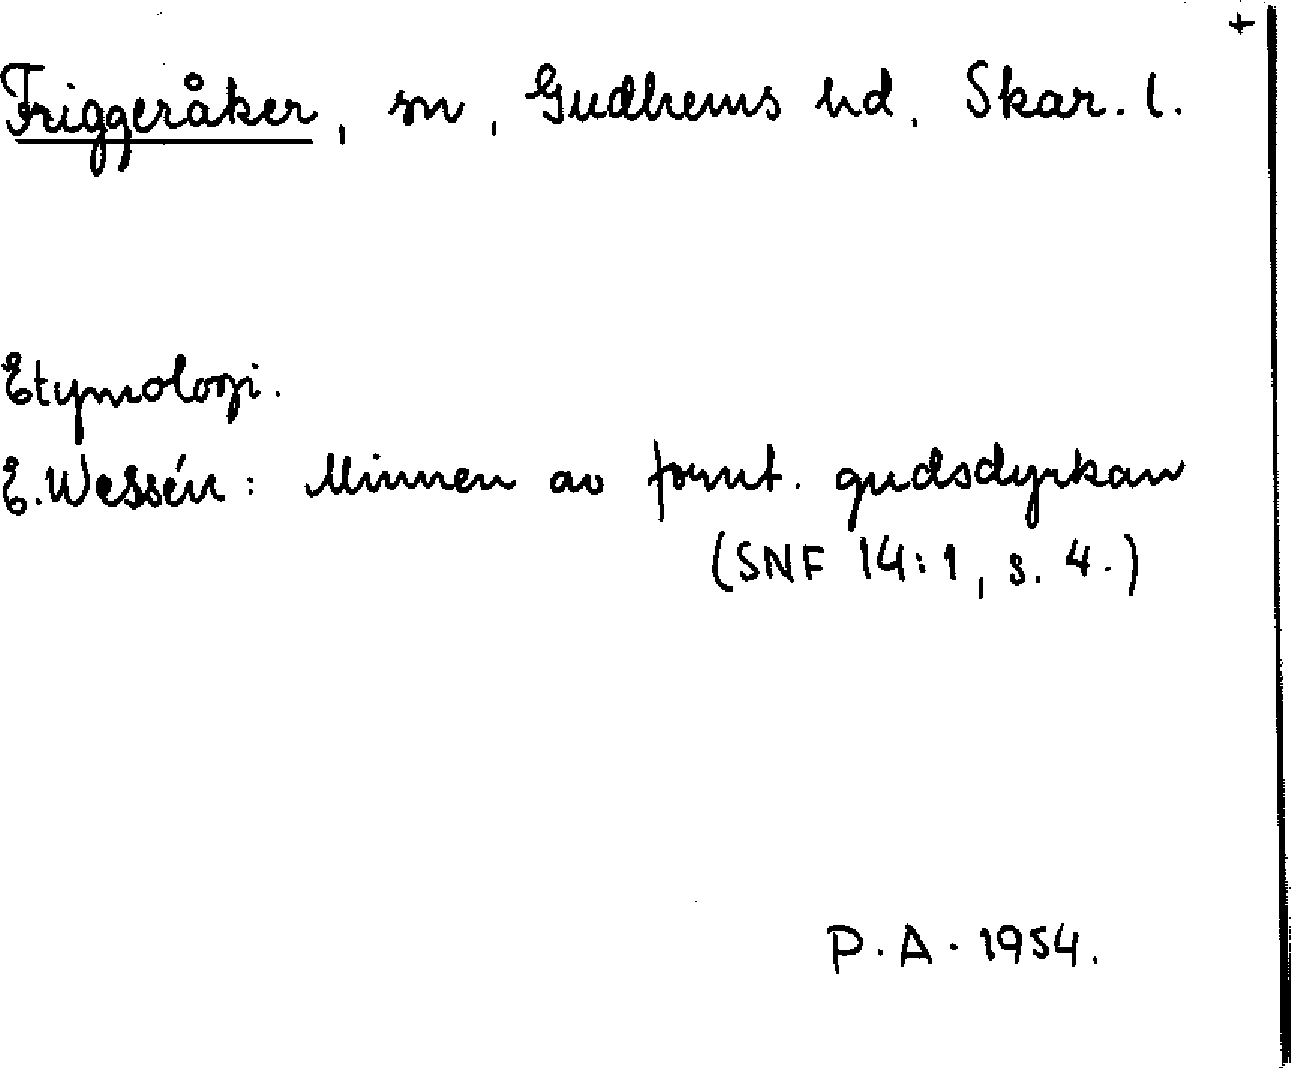 +
Friggeråker, sn, Gudhems hd, Skar. l.
Etymologi.
E. Wessén: Minnen av fornt. gudsdyrkan
(SNF 14:1, s. 4.)
P. A. 1954.